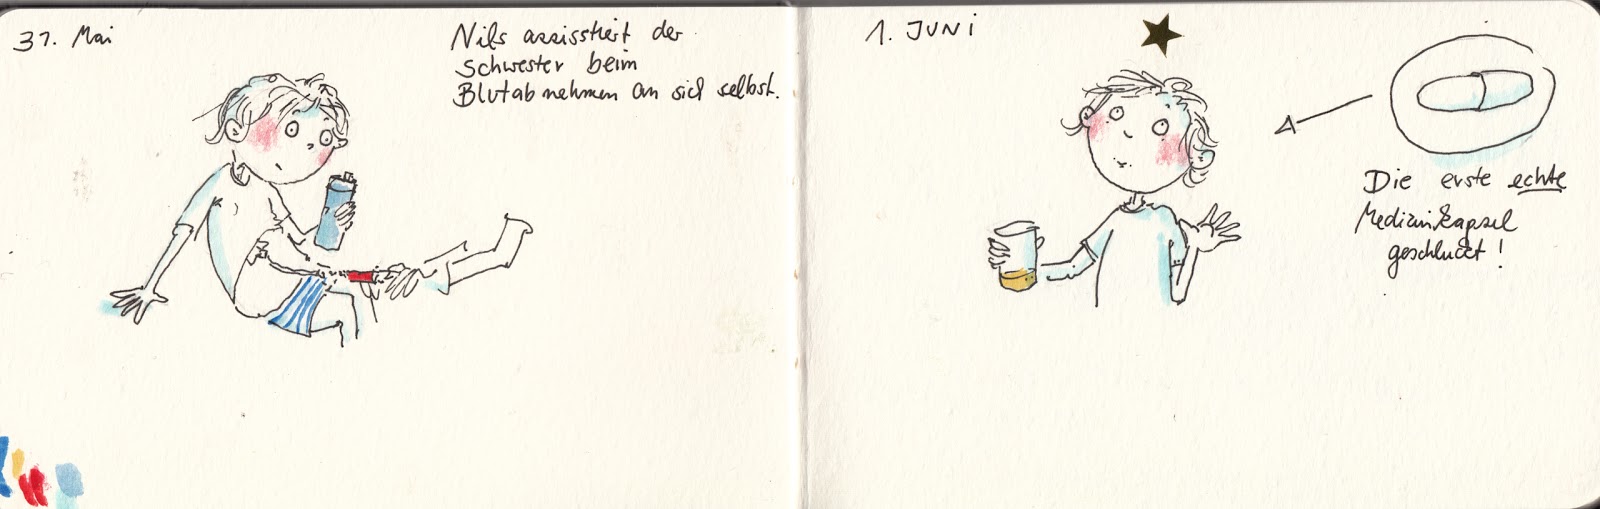 31. Mai
Nils assisstiert der
Schwester beim
Blutabnehmen an sich selbst.
1. JUNI
Die erste echte
Medizinkapsel
geschluckt!